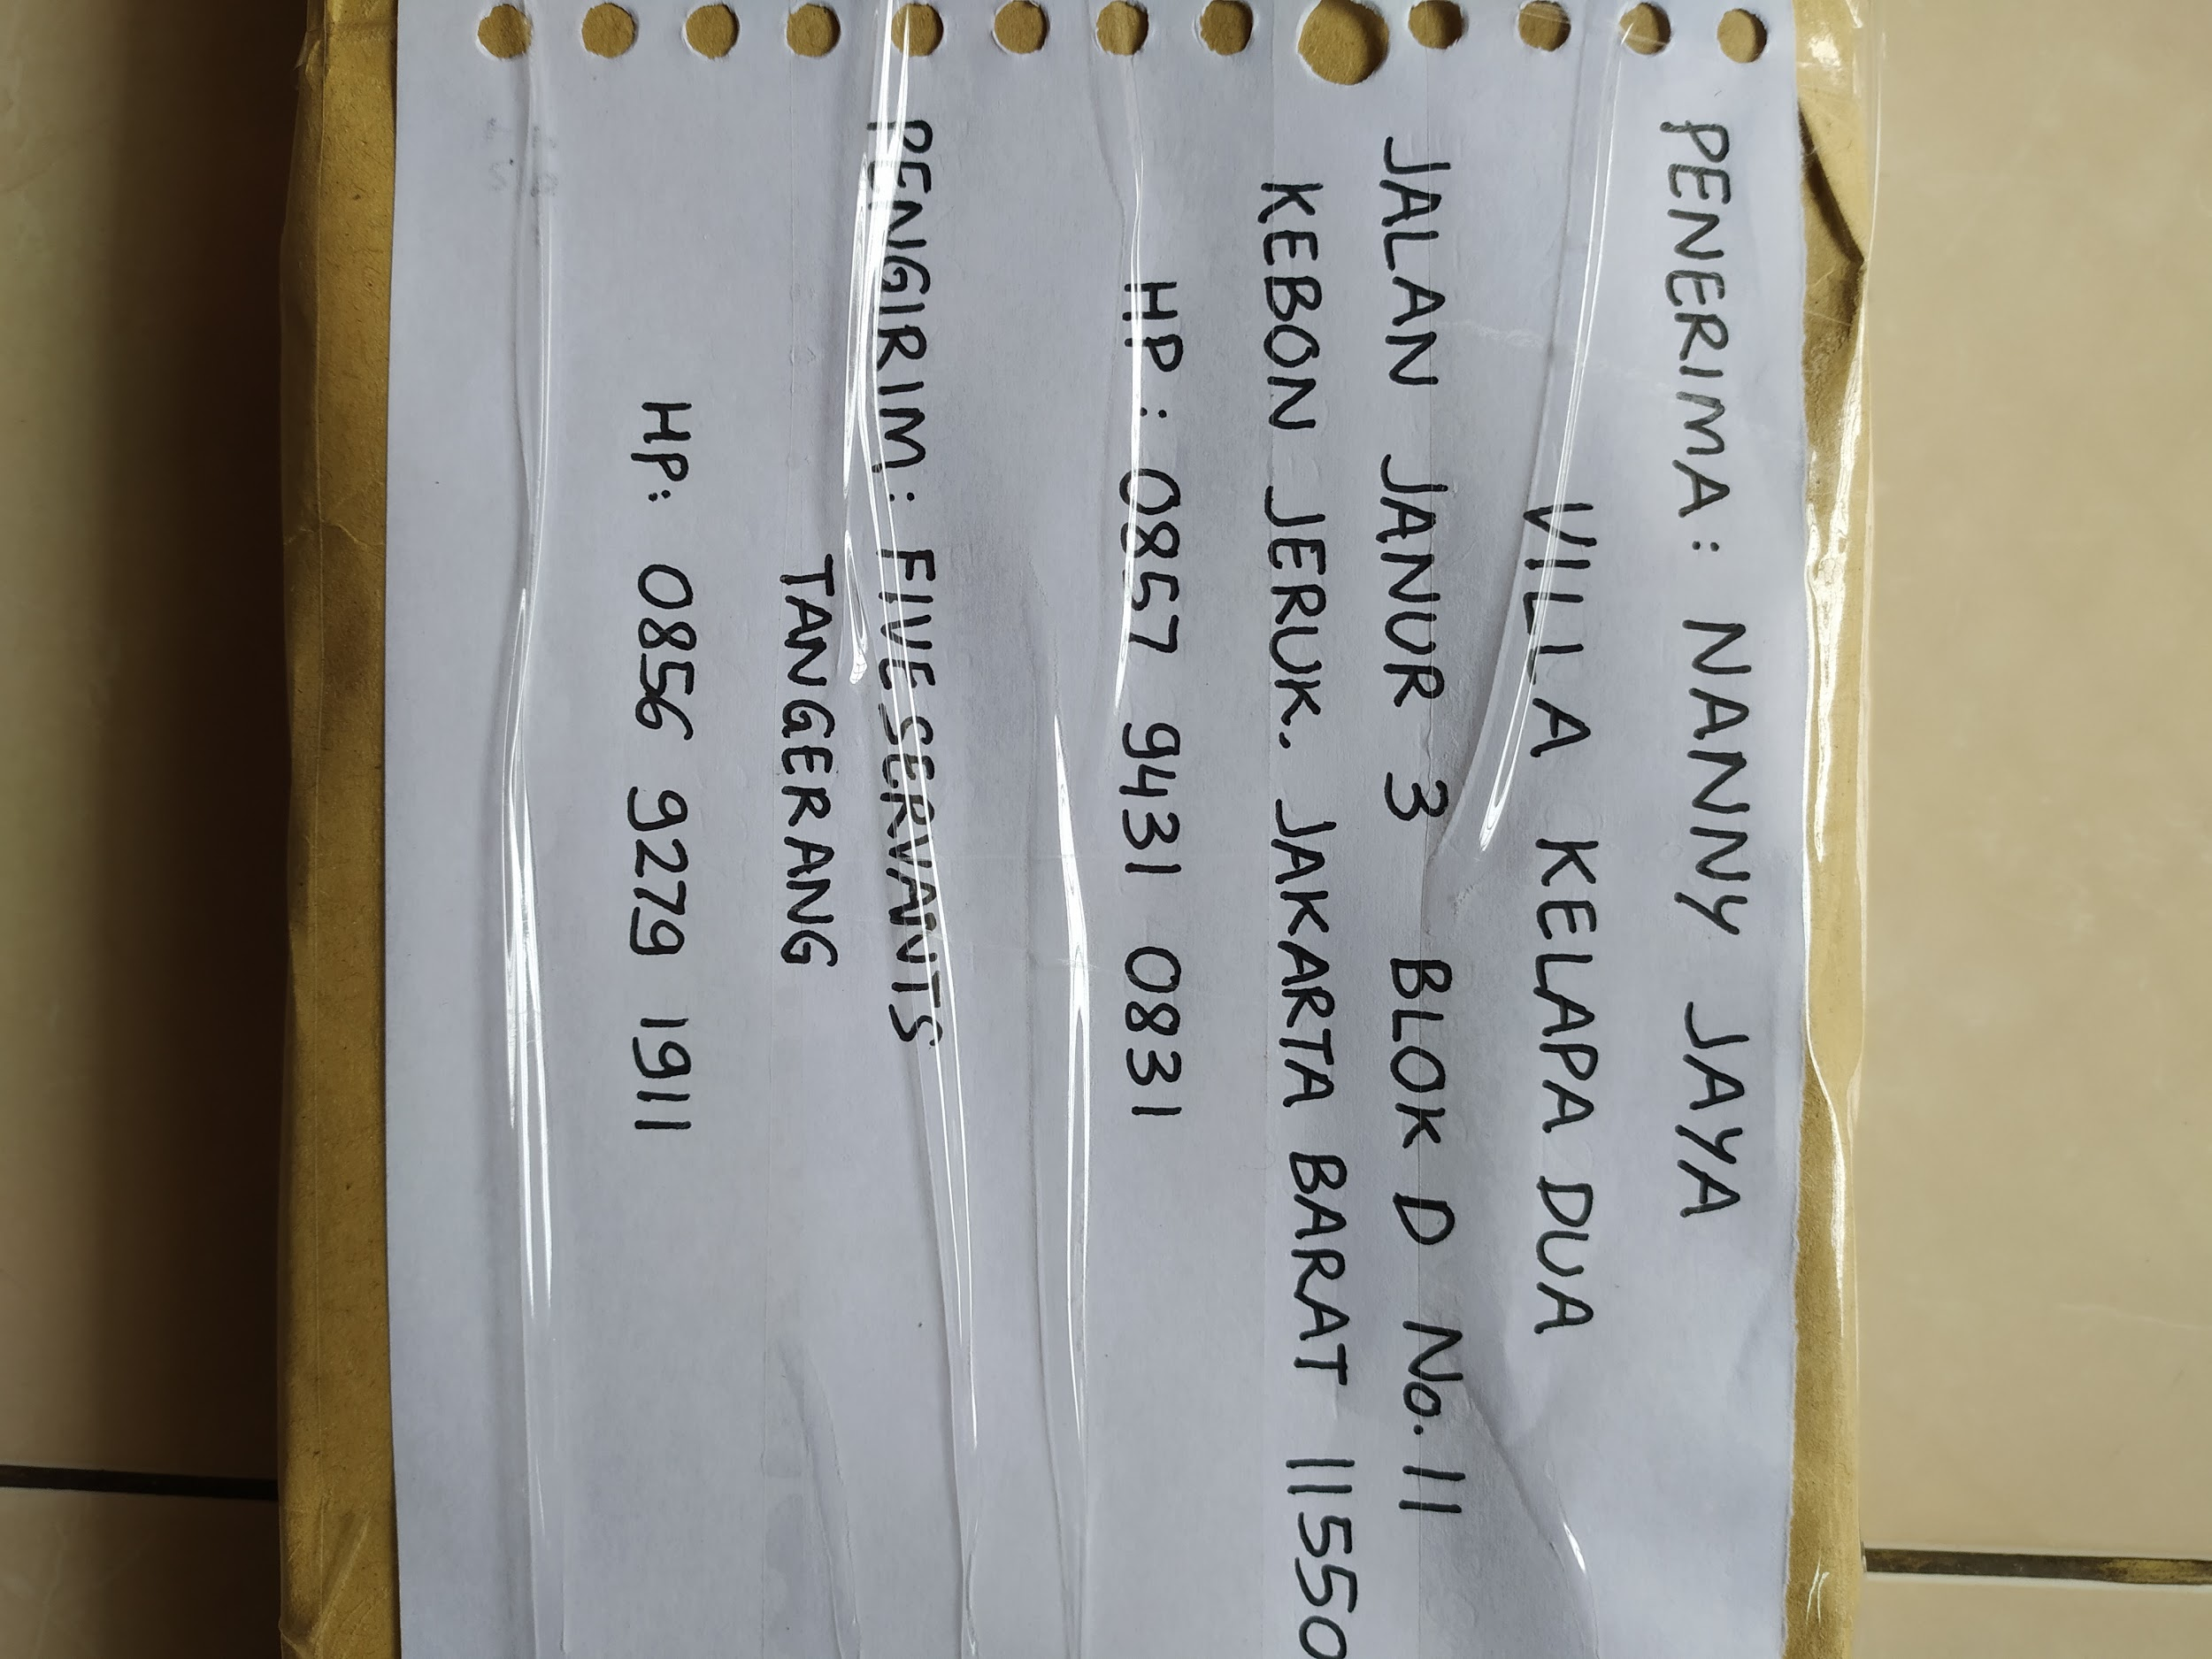 PENERIMA: NANNY JAYA
VILLA KELAPA DUA
JALAN JANUR 3 BLOK D No. 11
KEBON JERUK. JAKARTA BARAT 11550
HP: 0857 9431 0831
PENGIRIM: FIVE SERVANTS
TANGERANG
HP: 0856 9279 1911